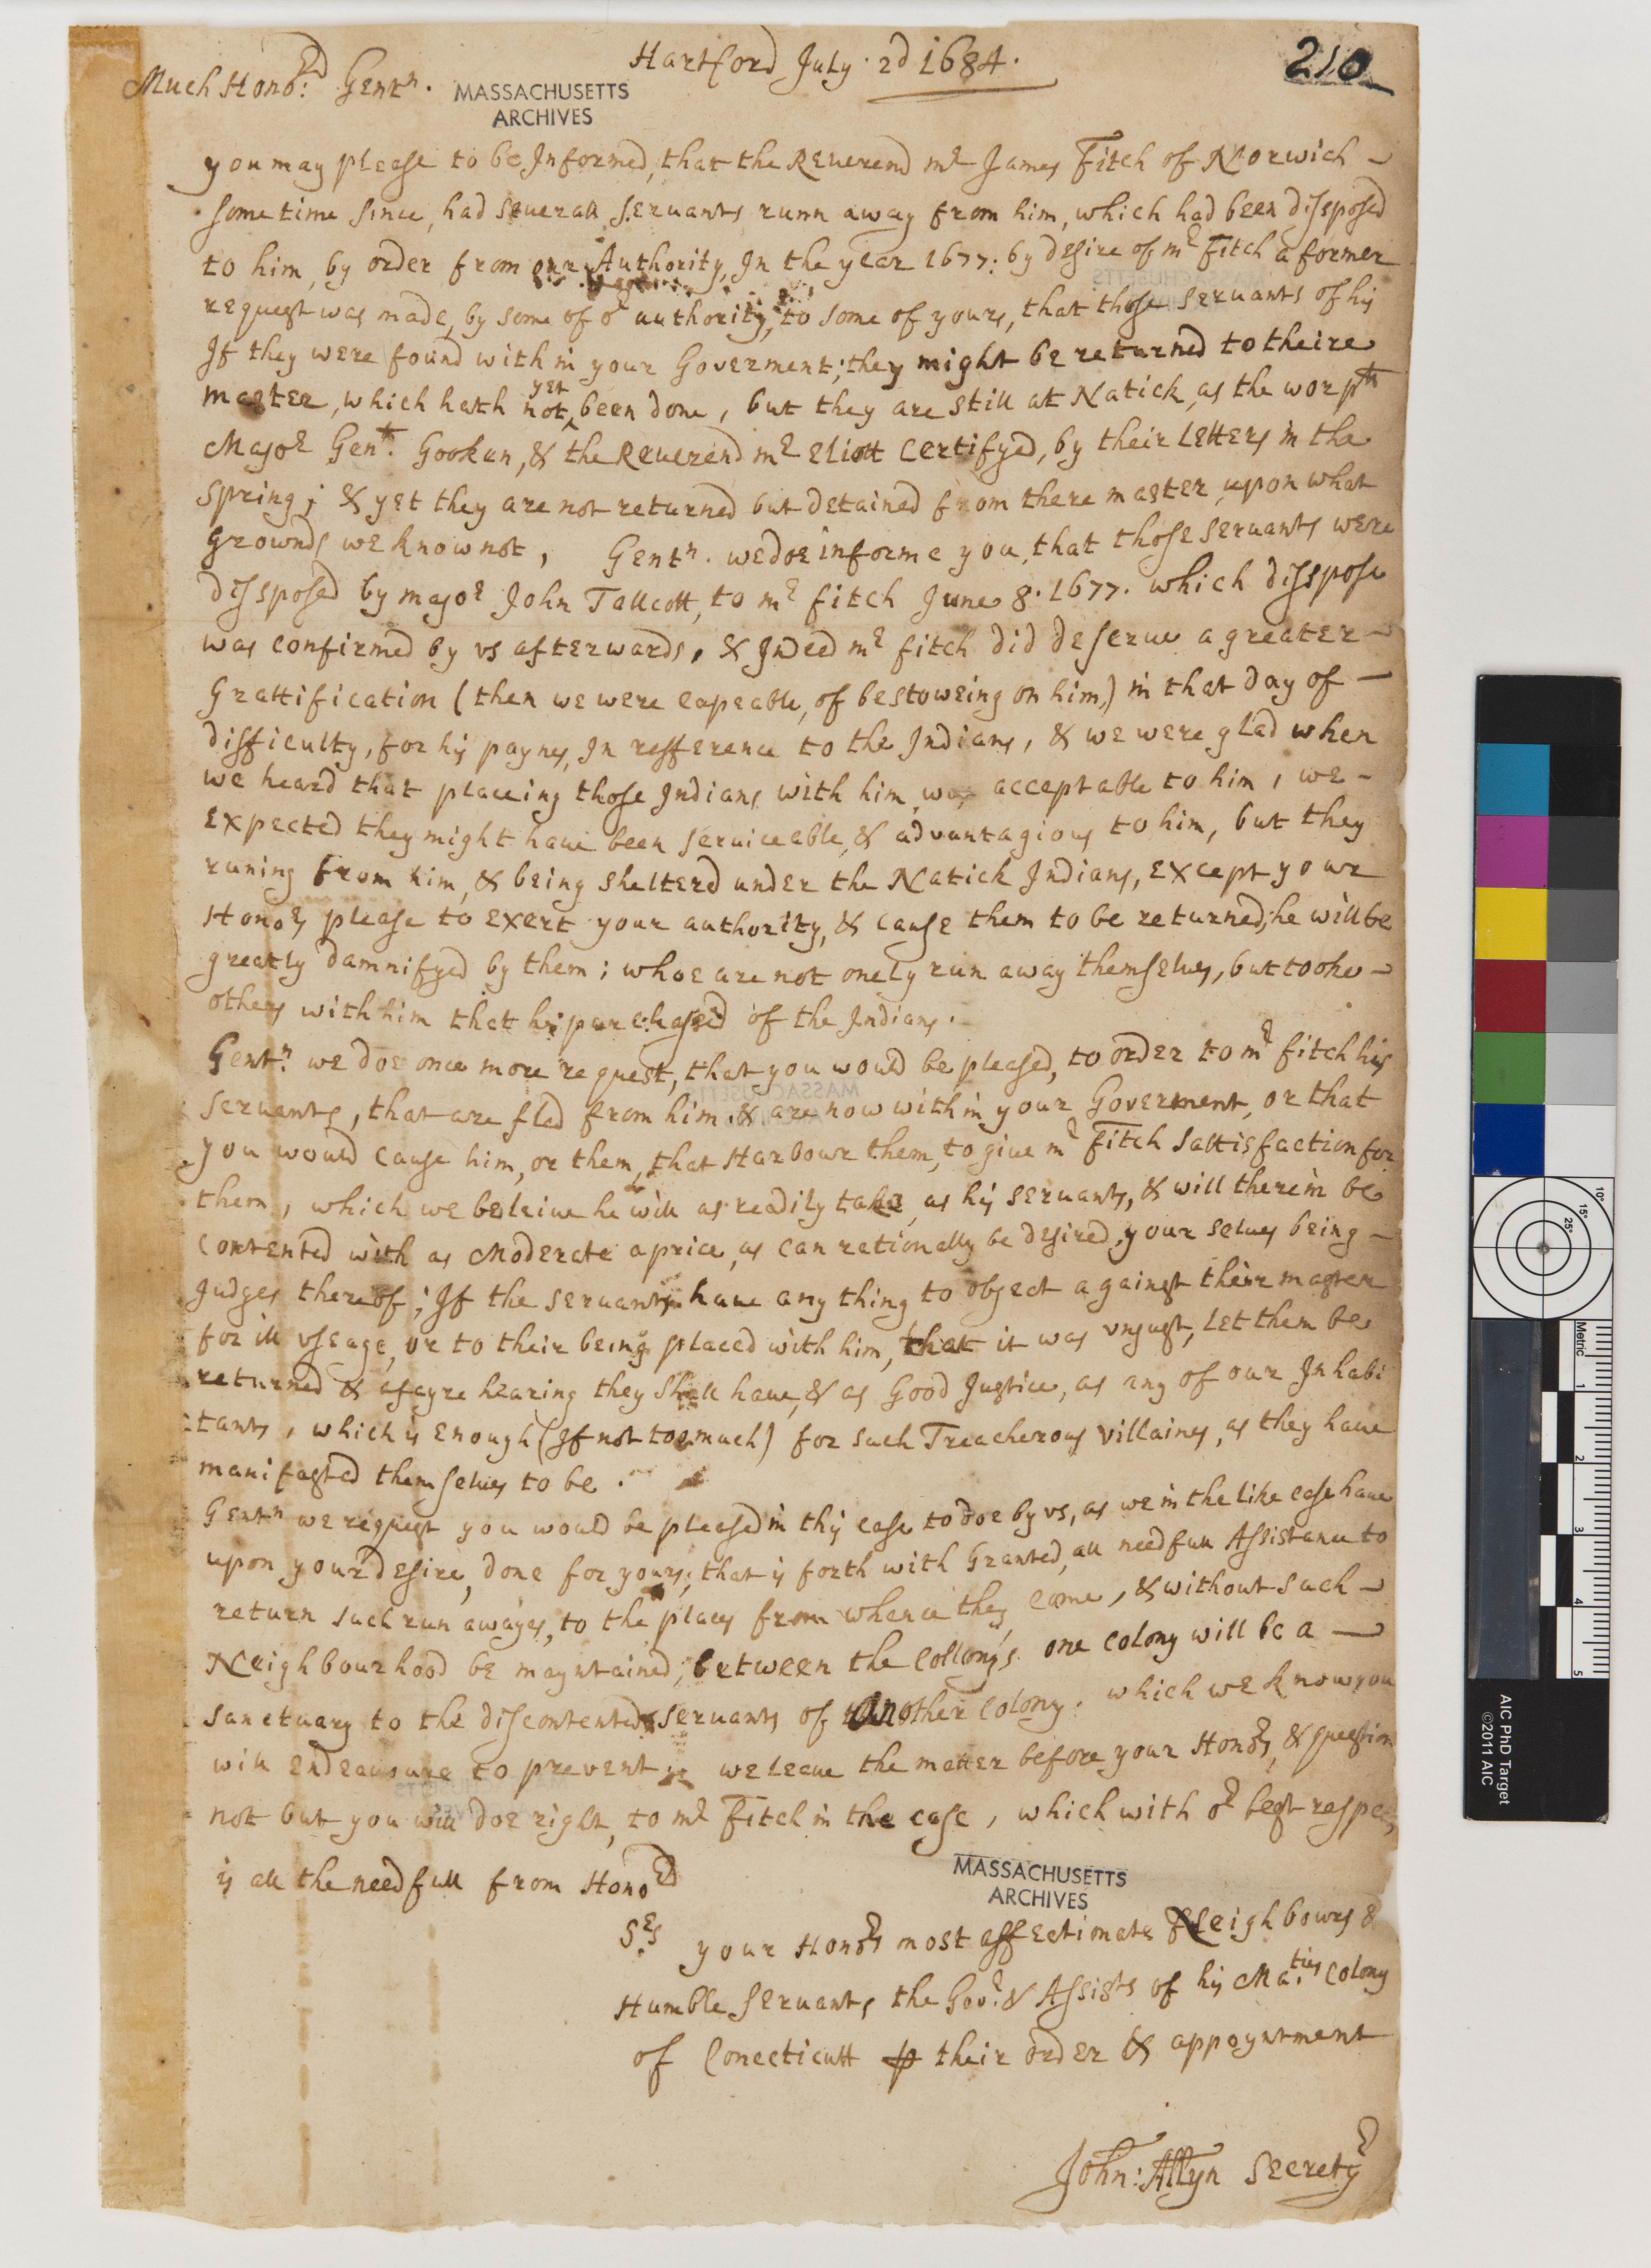 Hartford July 2d 1684.
210
Much Honod: Gentn.
MASSACHUSETTS
ARCHIVES
you may please to be Informed, that the Reuerend mr James Fitch of Norwich
some time since, had seuerall seruants runn away from him, which had been dissposed
to him, by order from our Authority, In the year 1677: by desire of mr Fitch a former
request was made, by some of or authority, to some of yours, that those seruants of his
If they were found with in your Goverment; they might be returned to theire
master, which hath not yet been done, but they are still at Natick, as the worpll
Major Genll. Gookin, & the Reuerend mr Eliott Certifyed, by their Letters in the
spring; & yet they are not returned but detained from there master, upon what
grownds we know not, Gentn. we doe informe you, that those seruants were
dissposed by major John Tallcott, to mr fitch June 8. 1677. which disspose
was confirmed by vs afterwards, & Indeed mr fitch did deserue a greater
Grattification (then we were capeable, of bestoweing on him,) in that day of
difficulty, for his paynes, In refference to the Indians, & we were glad when
we heard that placeing those Indians with him, was acceptable to him, we
Expected they might haue been seruiceable, & advantagious to him, but they
runing from him, & being shelterd under the Natick Indians, Except your
Honors please to exert your authority, & cause them to be returned, he will be
greatly damnifyed by them; whoe are not onely run away themselues, but tooke
others with him that he purchased of the Indians.
Gentn: we doe once more request, that you would be pleased, to order to mr fitch his
seruants, that are fled from him & are now with in your Goverment, or that
you would cause him, or them, that Harbour them, to giue mr Fitch sattisfaction for
them, which we beleiue he will as readily take, as his seruants, & will therein be
contented with as Moderate a price, as can rationally be desired, your selues being
Judges thereof; If the seruants haue any thing to object against their master
for ill vseage, or to their being placed with him, that it was vnjust, Let them be
returned & a fayre hearing they shall haue, & as Good Justice, as any of our Inhabi
tants, which is Enough (If not too much) for such Treacherous villaines, as they haue
manifested themselues to be.
Gentn we request you would be pleased in this case to doe by vs, as we in the like case haue
upon your desire, done for yours; that is forth with Granted, all needfull Assistance to
return such run awayes, to the places from whence they came, & without such
Neighbourhood be mayntained; between the collonys. one colony will be a
sanctuary to the discontented seruants of another colony. which we know you
will endeauoure to prevent we leaue the matter before your Honors, & question
not but you will doe right, to mr Fitch in the case, which with or best respects,
is all the needfull from Honord
MASSACHUSETTS
ARCHIVES
Srs your Honors most affectionate Neighbours &
Humble seruants, the Govr: & Assists of his Maties Colony
of Conecticutt p their order & appoyntment
John: Allyn Secretry
AIC PhD Target
©2011 AIC
Metric
1
2
3
4
5
10°
15°
25°